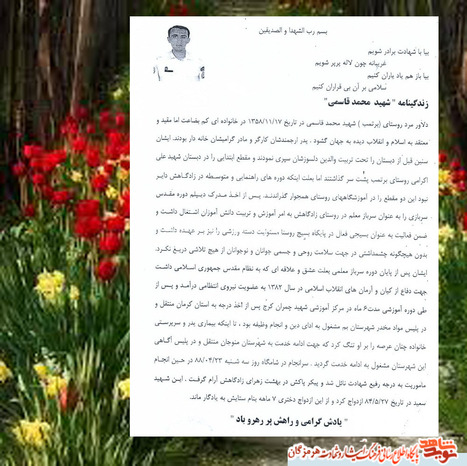 بسم رب الشهدا و الصدیقین
بیا با شهادت برادر شویم
غریبانه چون لاله پرپر شویم
بیا باز هم یاد یاران کنیم
سلامی بر آن بی قراران کنیم
زندگینامه " شهید محمد قاسمی "
دلاور مرد روستای (برنمب) شهید محمد قاسمی در تاریخ ۱۳۵۸/۱۱/۱۷ در خانواده ای کم بضاعت اما مقید و
معتقد به اسلام و انقلاب دیده به جهان گشود . پدر ارجمندشان کارگر و مادر گرامیشان خانه دار بودند. ایشان
سنین قبل از دبستان را تحت تربیت والدین دلسوزشان سپری نمودند و مقطع ابتدایی را در دبستان شهید علی
اکرامی روستای برنمب پشت سر گذاشتند اما بعلت اینکه دوره های راهنمایی و متوسطه در زادگاهش دایر
نبود این دو مقطع را در آموزشگاههای روستای همجوار گذراندند. پس از اخذ مدرک دیپلم دوره مقدس
سربازی را به عنوان سرباز معلم در روستای زادگاهش به امر آموزش و تربیت دانش آموزان اشتغال داشت و
ضمن فعالیت به عنوان بسیجی فعال در پایگاه بسیج روستا مسئولیت دسته ورزشی را نیز بر عهده داشت و
بدون هیچگونه چشمداشتی در جهت سلامت روحی و جسمی جوانان و نوجوانان از هیچ تلاشی دریغ نکرد.
ایشان پس از پایان دوره سرباز معلمی بعلت عشق و علاقه ای که به نظام مقدس جمهوری اسلامی داشت
جهت دفاع از کیان و آرمان های انقلاب اسلامی در سال ۱۳۸۲ به عضویت نیروی انتظامی درآمد و پس از
طی دوره آموزشی مدت ۶ ماه در مرکز آموزشی شهید چمران کرج پس از اخذ درجه به استان کرمان منتقل و
در پلیس مواد مخدر شهرستان بم مشغول به ادای دین و انجام وظیفه بود ، تا اینکه بیماری پدر و سرپرستی
خانواده چنان عرصه را بر او تنگ کرد که جهت ادامه خدمت به شهرستان منوجان منتقل و در پلیس آگاهی
این شهرستان مشغول به ادامه خدمت گردید . سرانجام در شامگاه روز سه شنبه ۸۸/۰۴/۲۳ در حین انجام
ماموریت به درجه رفیع شهادت نائل شد و پیکر پاکش در بهشت زهرای زادگاهش آرام گرفت . این شهید
سعید در تاریخ ۸۴/۵/۲۷ ازدواج کرد و از این ازدواج دختری ۷ ماهه بنام ستایش به یادگار ماند.
" یادش گرامی و راهش پر رهرو باد "
پایگاه اطلاع رسانی فرهنگ ایثار و شهادت هرمزگان
نوید شاهد